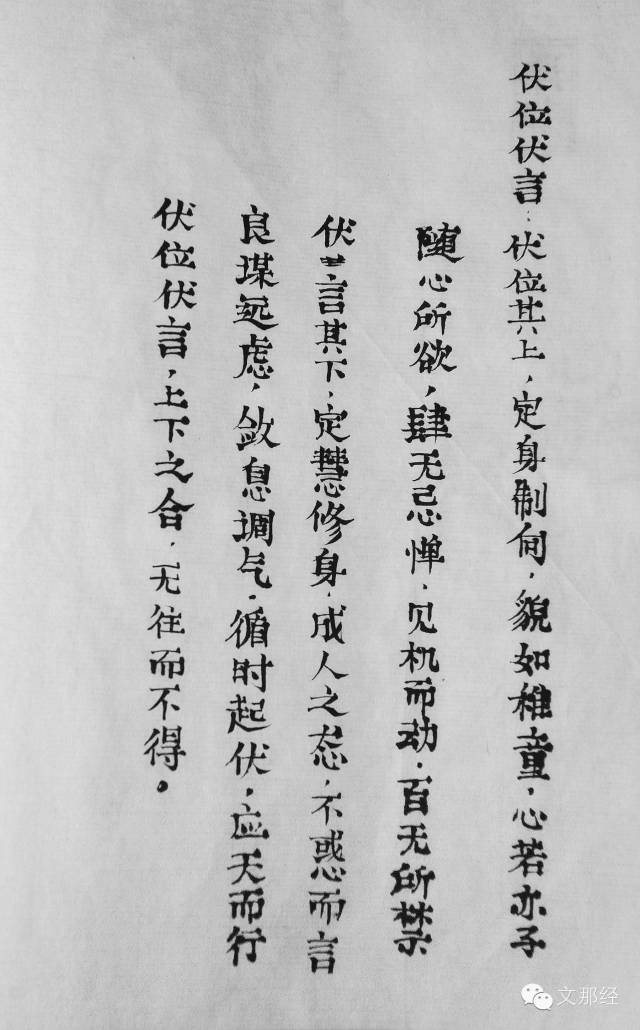 伏位伏言：伏位其上，定身制伺，貌如稚童，心若亦子
随心所欲，肆无忌惮，见机而动，百无所禁
伏言其下，定慧修身，成人之态，不惑而言
良谋远虑，敛息调气，循时起伏，应天而行
伏位伏言，上下之合，无往而不得。
文那经